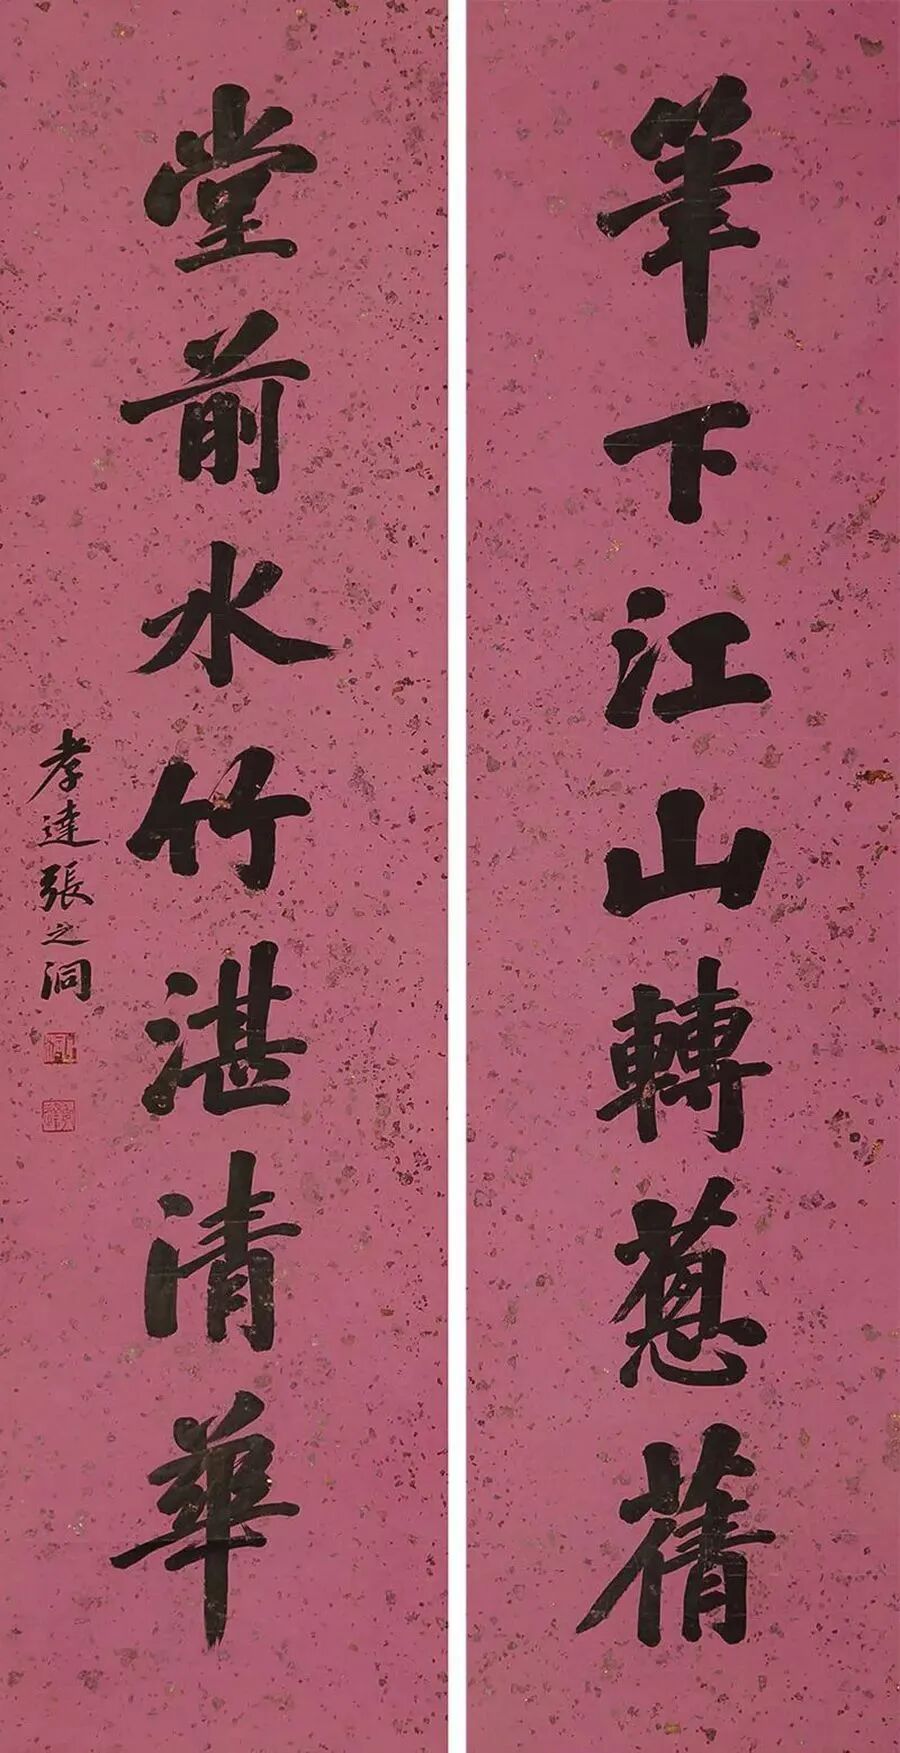 筆下江山轉蔥蒨
堂前水竹湛清華
孝達張之洞